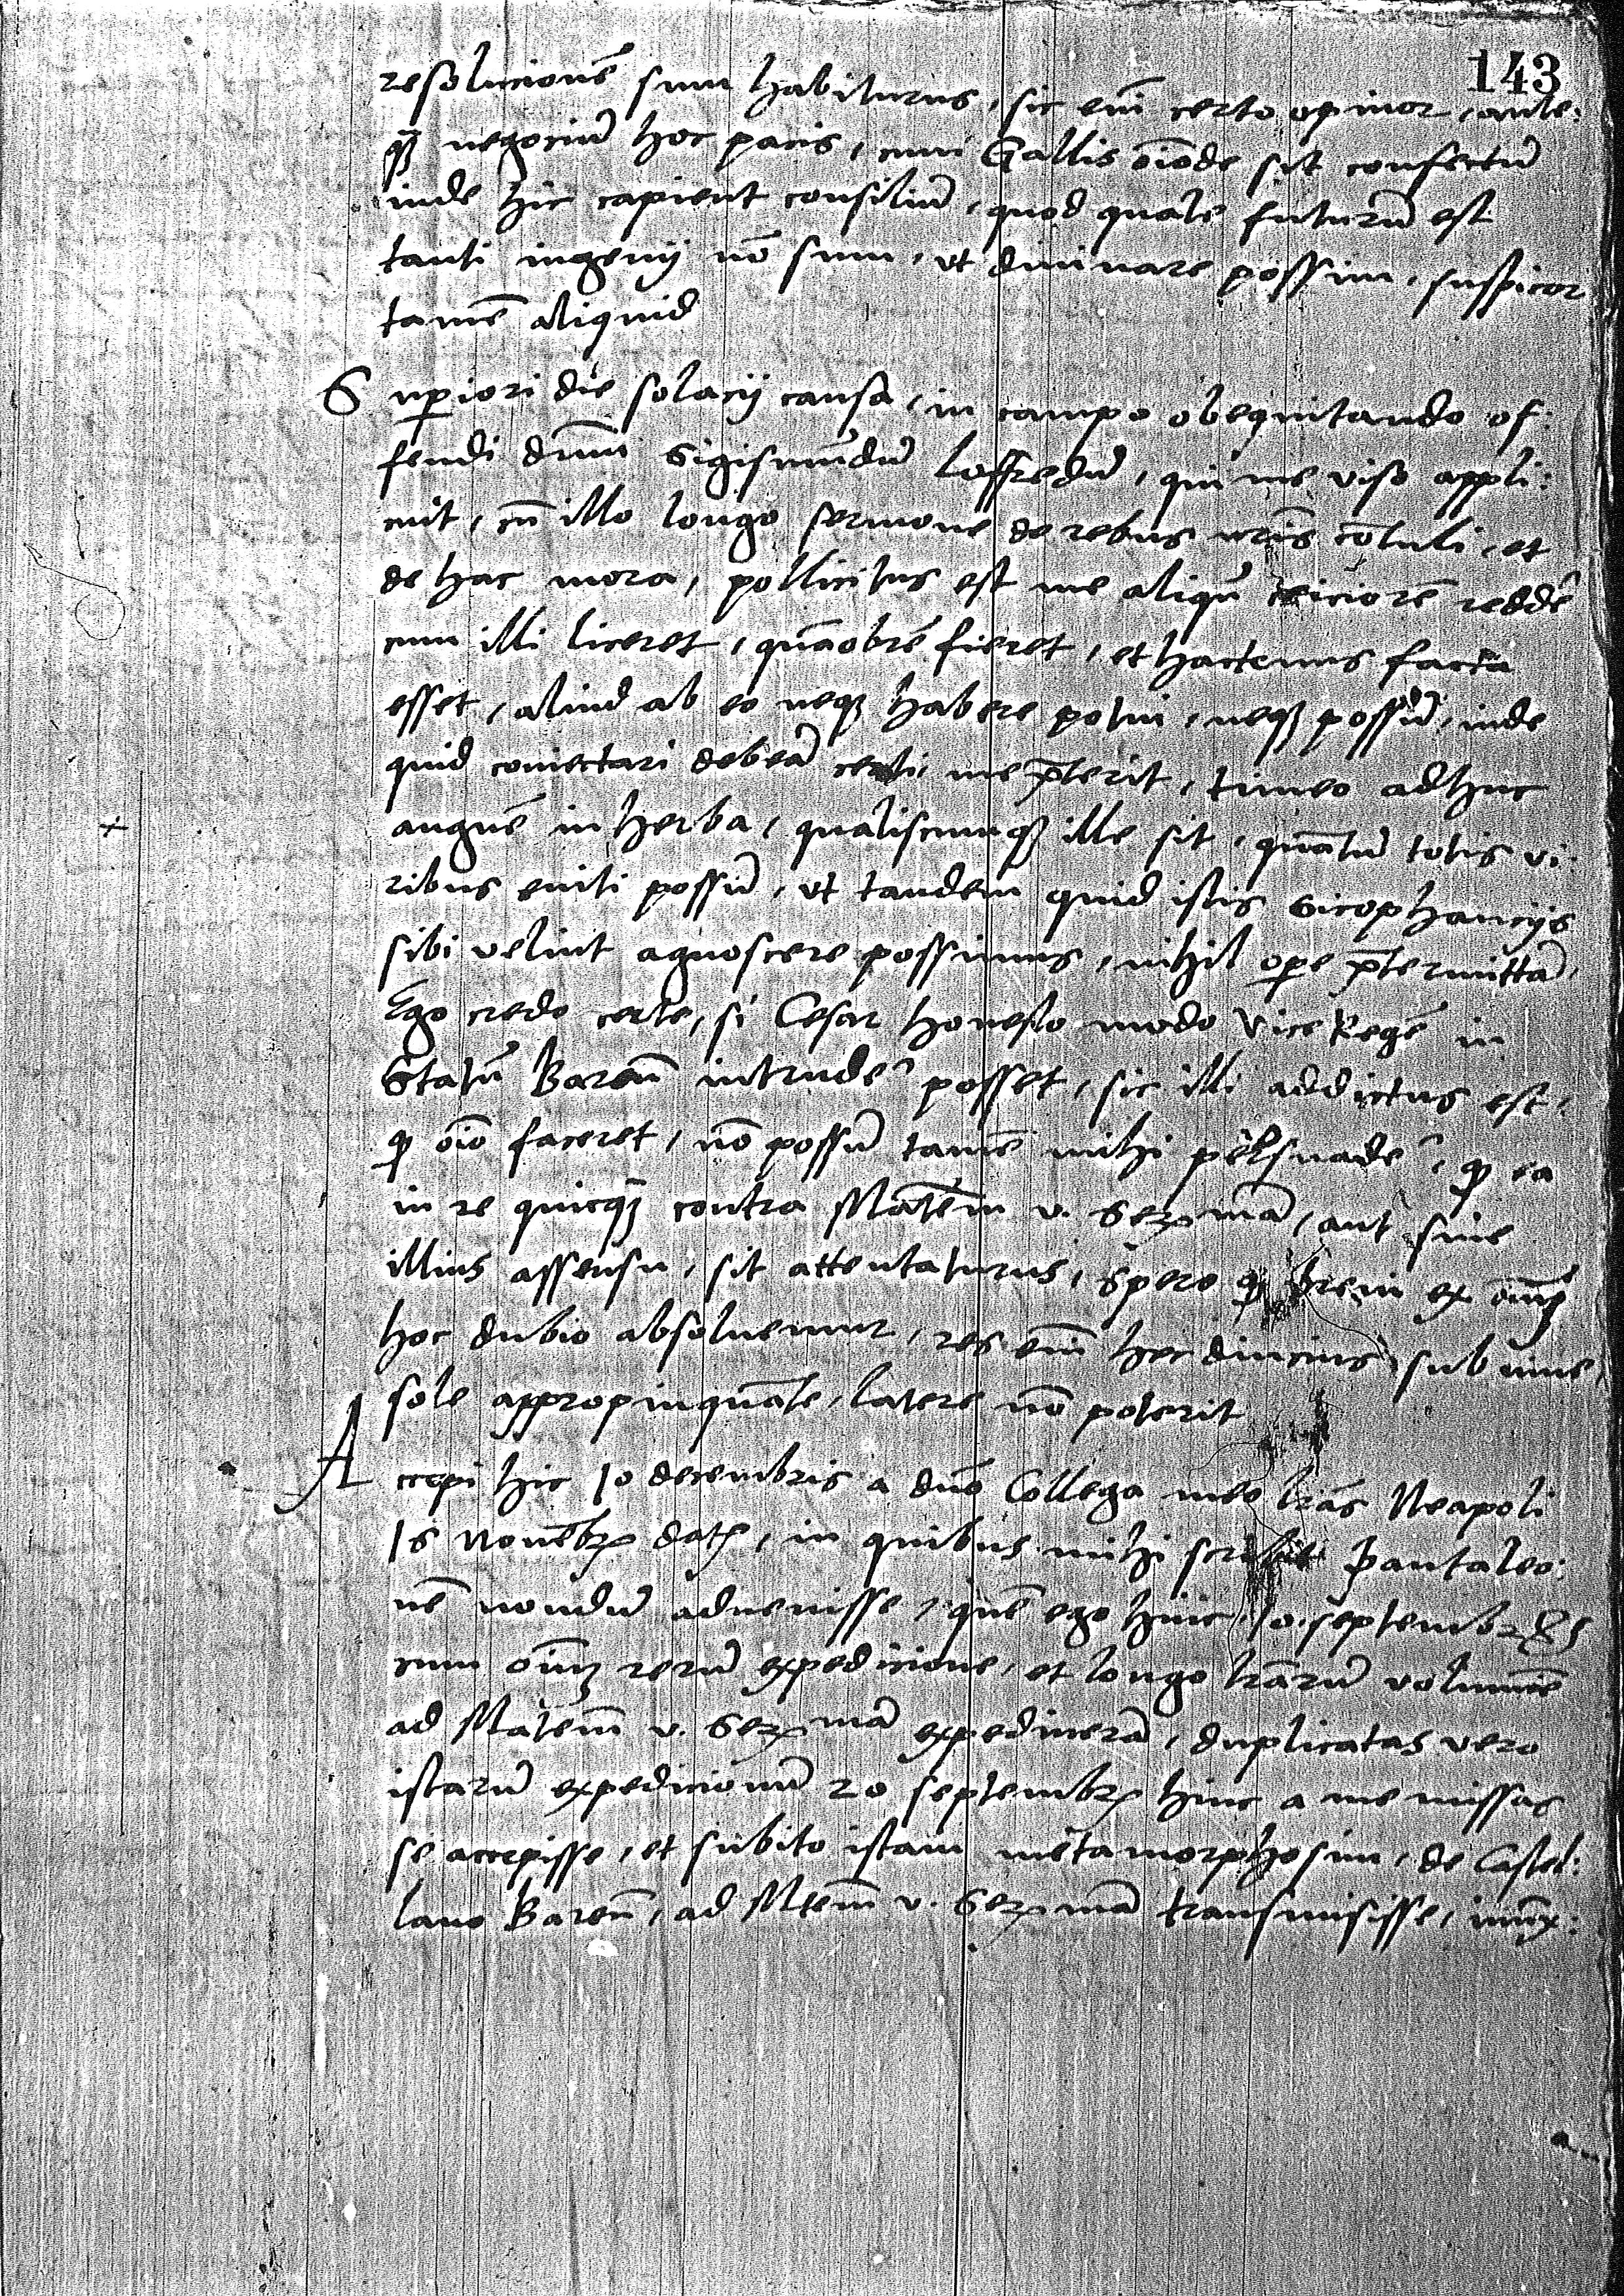 143
resolucionē sum habiturus, sic em̄ certo opinor, ante:
qꝫ negociū hoc pacis, cum Gallis om̄ode sit confectū
inde hic capient consiliū, quod quale futurū est
tanti ingenij nō sum, vt diuinare possim, suspicor
tamē aliquid
Suꝑiori die solacij causa, in campo obequitando of:
fendi dnūm Sigismūdū Loffredū, qui me viso appli:
cuit, cū illo longo sermone de rebus nrīs cōtuli, et
de hac mora, pollicitus est me aliqn̄ redde͂
cum illi liceret, quāobrē fieret, et hactenus facta
esset, aliud ab eo neqꝫ habere potui, neqꝫ possū, inde
quid coniectari debeā certi, me p̄terit, timeo adhuc
anguē in herba, qualiscumqꝫ ille sit, quātū totis vi:
ribus eniti possū, vt tandem quid istis sicophancijs
sibi velint agnoscere possimus, nihil oꝑe p̄termittā,
Ego credo certe, si Cesar honesto modo Vice Regē in
Statū Bareñ intrude͂ posset, sic illi addictus est,
qꝫ oīo faceret, nō possū tamē mihi persuade͂, qꝫ ea
in re quicqꝫ contra Mātēm v. Serꝫ mā, aut sine
illius assensu, sit attentaturus, spero qꝫ breui ex omī
hoc dubio absoluemur, res em̄ hec diucius, sub niue,
sole appropinquāte, latere nō poterit
Accepi hic 10 decembris a dn̄o Collega meo lrās Neapoli
15 Nouēbꝫ datꝫ, in quibus mihi scribit Pantaleo:
nē nondū aduenisse, quē ego hinc 10 septembꝫ
cum oīm rerū expedicione, et longo lrārū volumīe
ad Mātēm v. Serꝫ mā expediuerā, duplicatas vero
istarū expedicionū 20 septembꝫ hinc a me missas
se accepisse, et subito istam metamorphosim, de Castel:
lano Bareñ, ad Mtēm v. Serꝫ mā transmisisse,